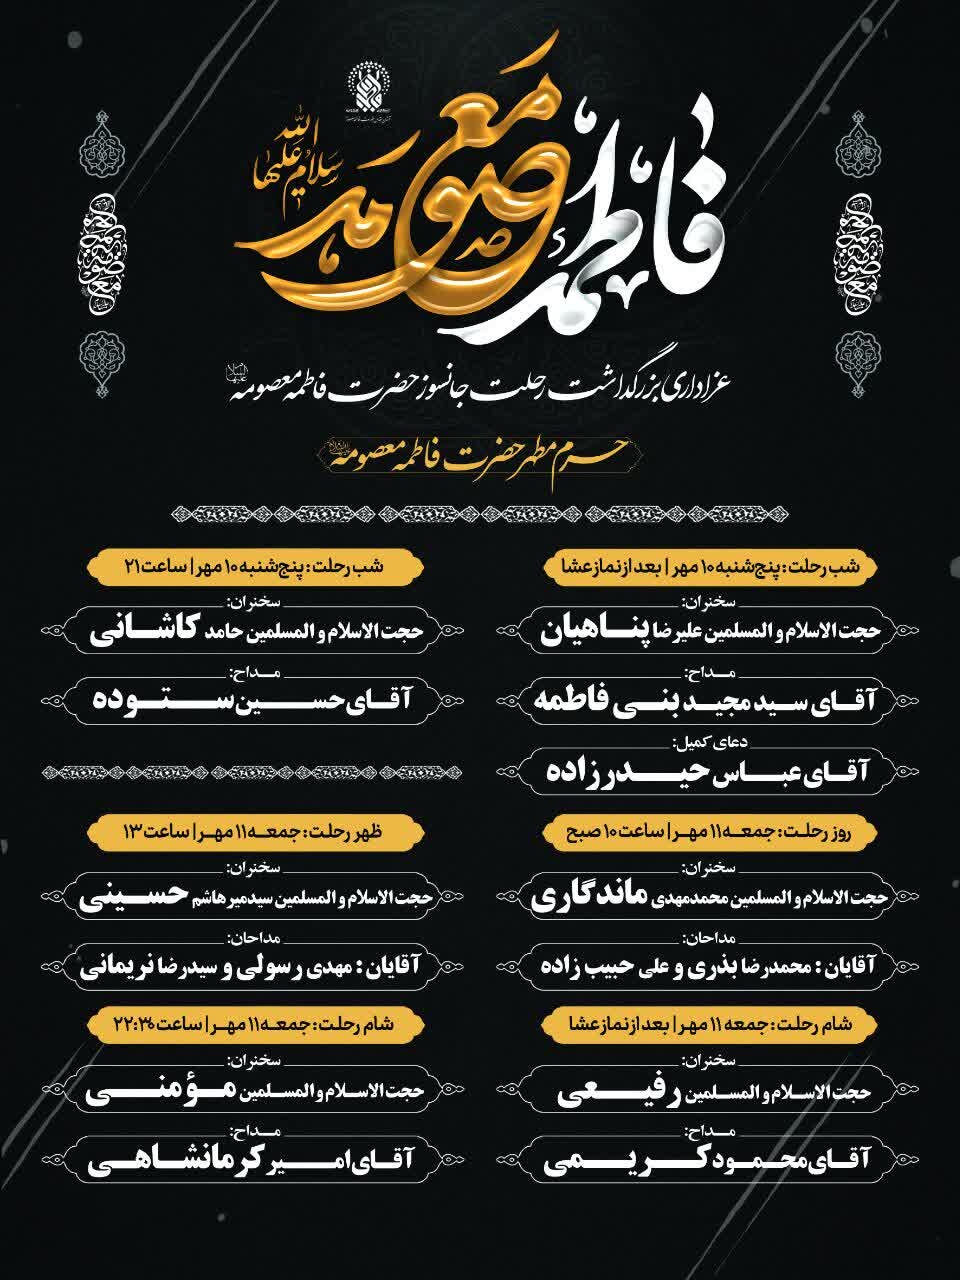 فاطمه معصومه
سلام الله علیها
عزاداری بزرگداشت رحلت جانسوز حضرت فاطمه معصومه
حرم مطهر حضرت فاطمه معصومه
شب رحلت: پنج‌شنبه ۱۰ مهر | بعد از نماز عشا
سخنران:
حجت الاسلام و المسلمین علیرضا پناهیان
مداح:
آقای سید مجید بنی فاطمه
دعای کمیل:
آقای عباس حیدرزاده
شب رحلت: پنج‌شنبه ۱۰ مهر | ساعت ۲۱
سخنران:
حجت الاسلام و المسلمین حامد کاشانی
مداح:
آقای حسین ستوده
روز رحلت: جمعه ۱۱ مهر | ساعت ۱۰ صبح
سخنران:
حجت الاسلام و المسلمین محمدمهدی ماندگاری
مداحان:
آقایان: محمدرضا بذری و علی حبیب زاده
ظهر رحلت: جمعه ۱۱ مهر | ساعت ۱۳
سخنران:
حجت الاسلام و المسلمین سیدمیرهاشم حسینی
مداحان:
آقایان: مهدی رسولی و سیدرضا نریمانی
شام رحلت: جمعه ۱۱ مهر | بعد از نماز عشا
سخنران:
حجت الاسلام و المسلمین رفیعی
مداح:
آقای محمود کریمی
شام رحلت: جمعه ۱۱ مهر | ساعت ۲۲:۳۰
سخنران:
حجت الاسلام و المسلمین مؤمنی
مداح:
آقای امیر کرمانشاهی